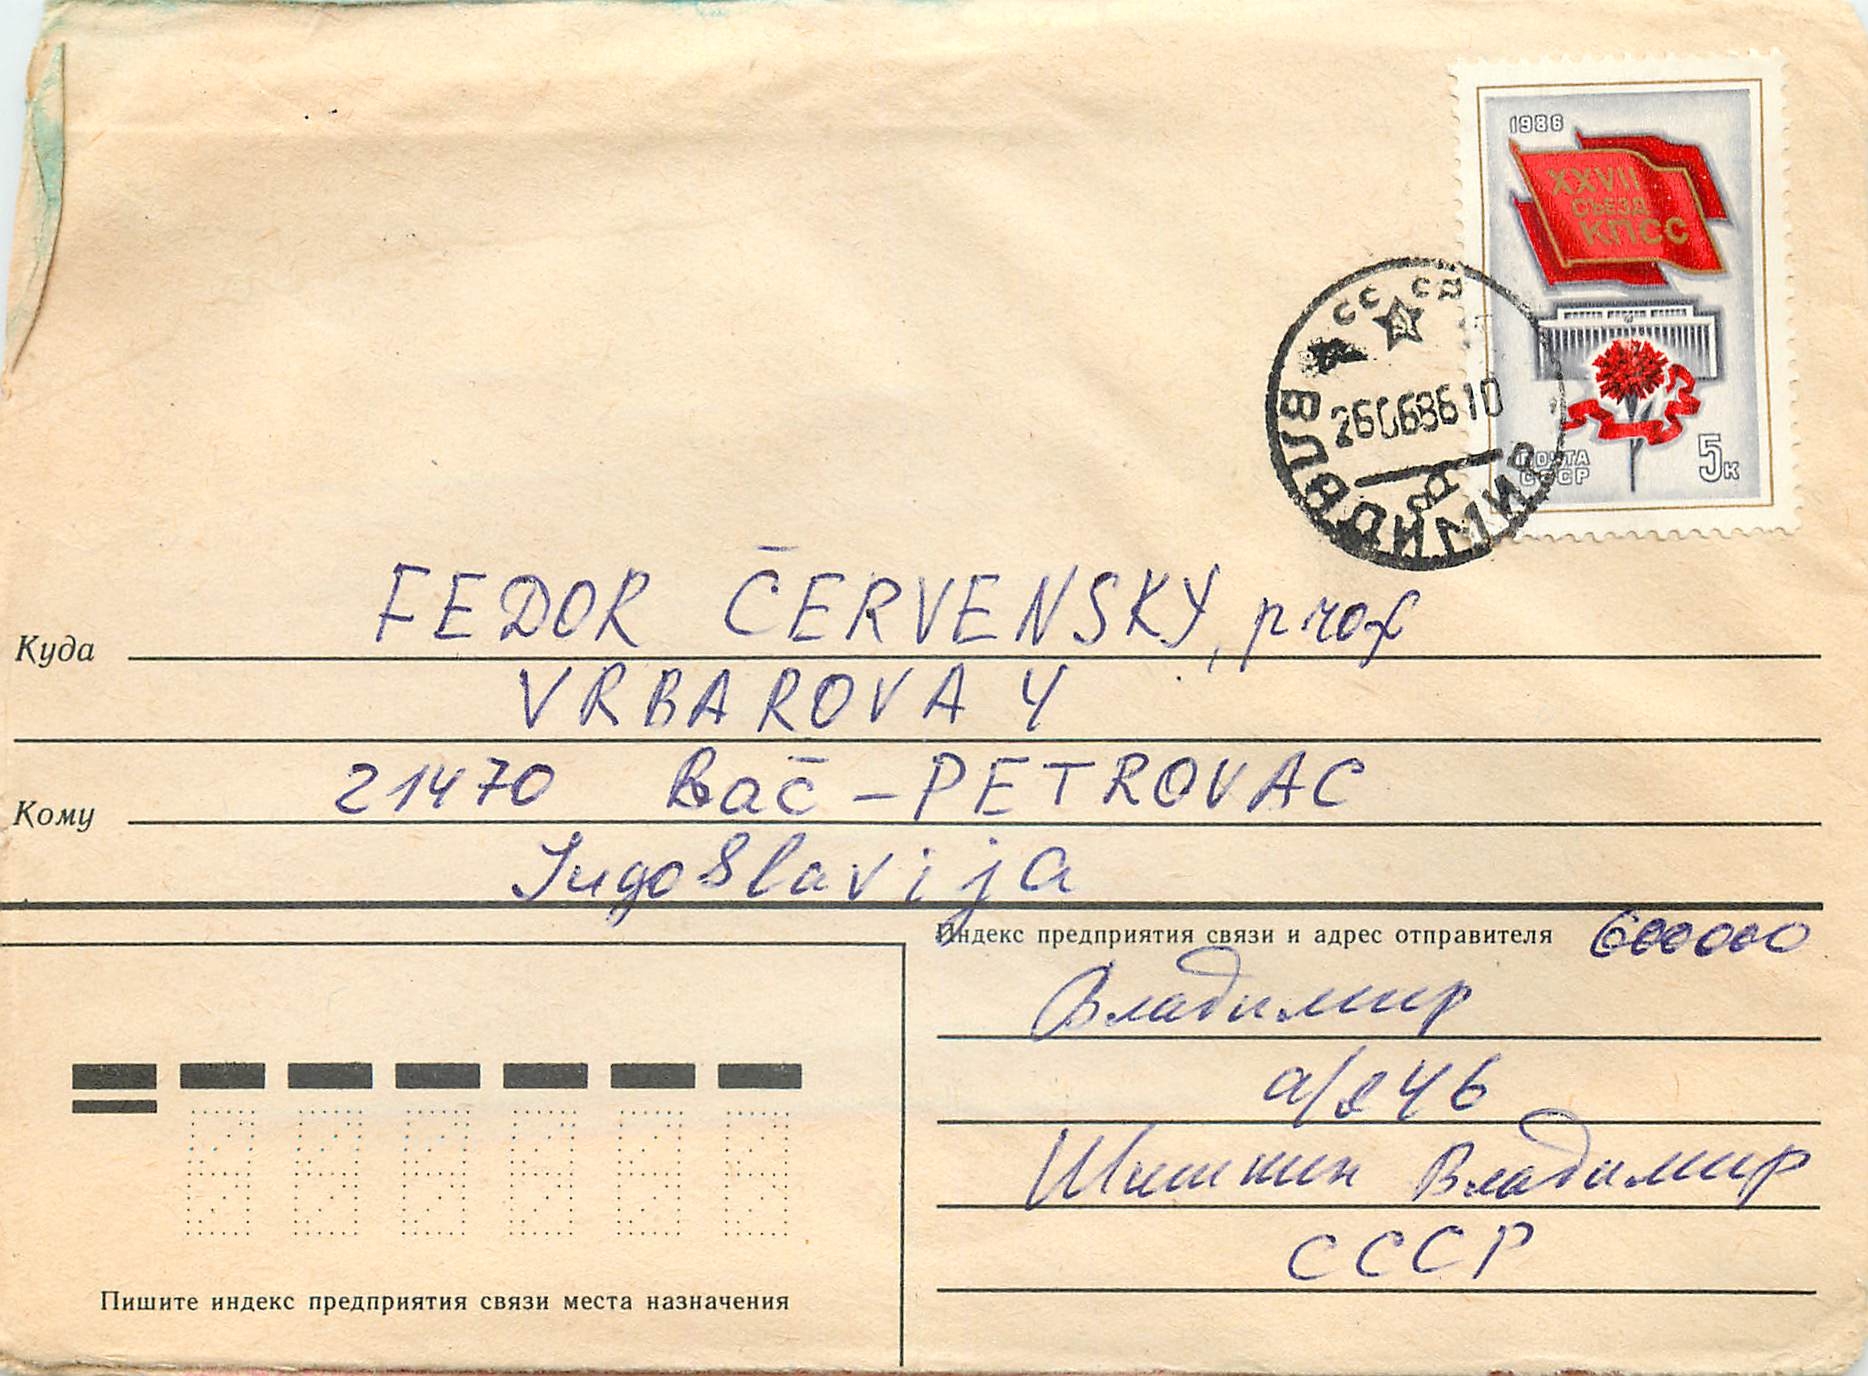 1986
XXVII
СЪЕЗД
КПСС
СССР
26068610
ВЛАДИМИР
ПОЧТА
СССР
5к
FEDOR ČERVENSKÝ, prof
Куда
VRBAROVA 4
21470 Bač - PETROVAC
Кому
Jugoslavija
Индекс предприятия связи и адрес отправителя 600000
Владимир
а/я 46
Шишкин Владимир
СССР
Пишите индекс предприятия связи места назначения